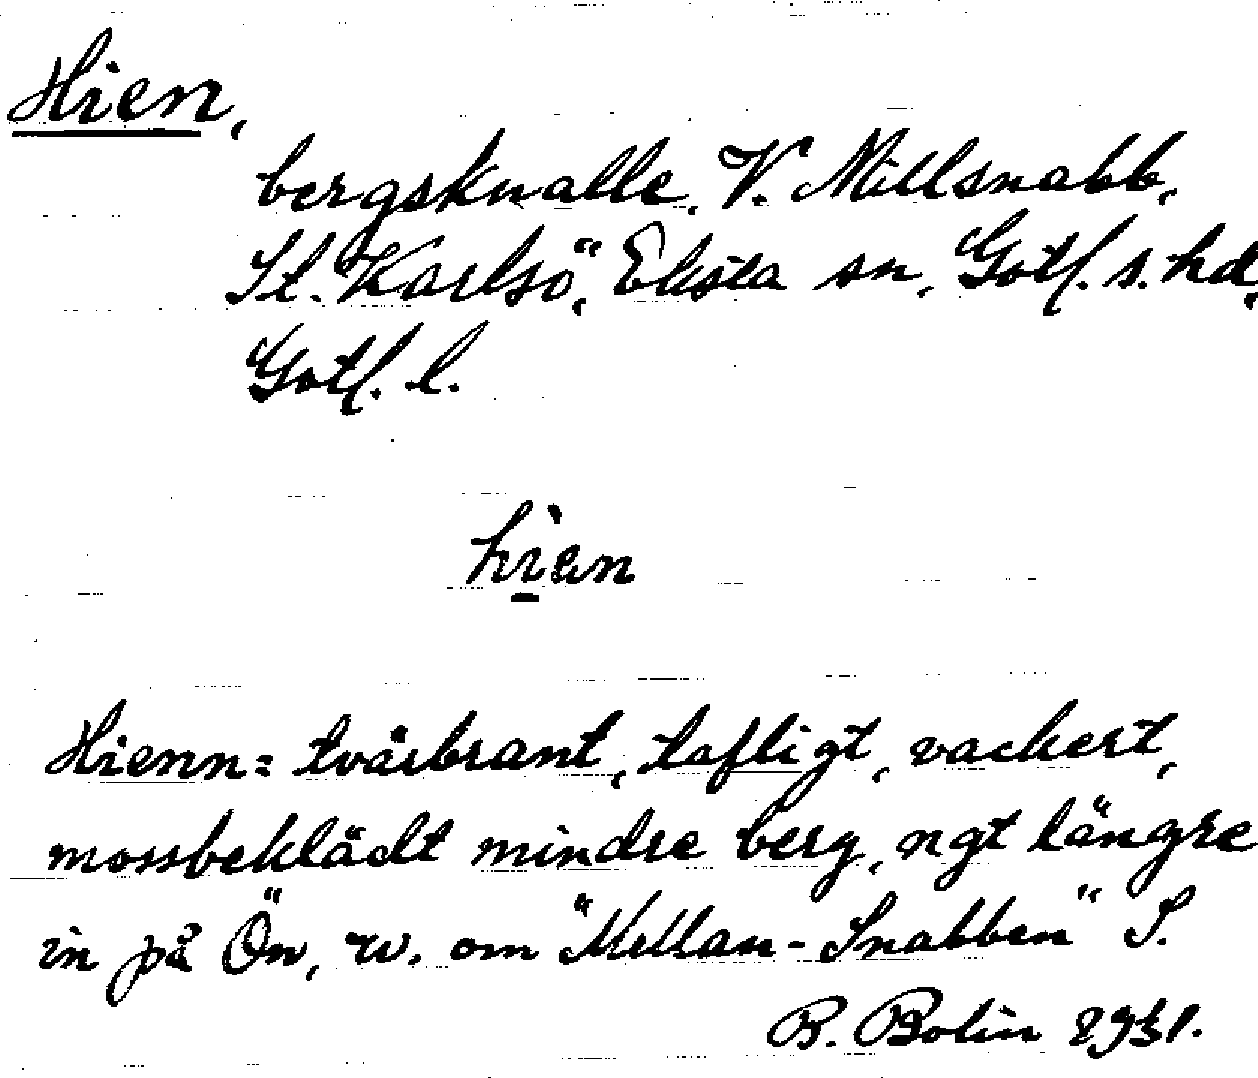 Hien,
bergsknalle, V. Mellsnabb,
St. Karlsö, Eksta sn, Gotl. s. hd,
Gotl. l.
hien
Hienn = tvärbrant, tafligt, vackert,
mossbeklädt mindre berg, ngt längre
in på Ön, w. om "Mellan-Snabben" S.
B. Bolin